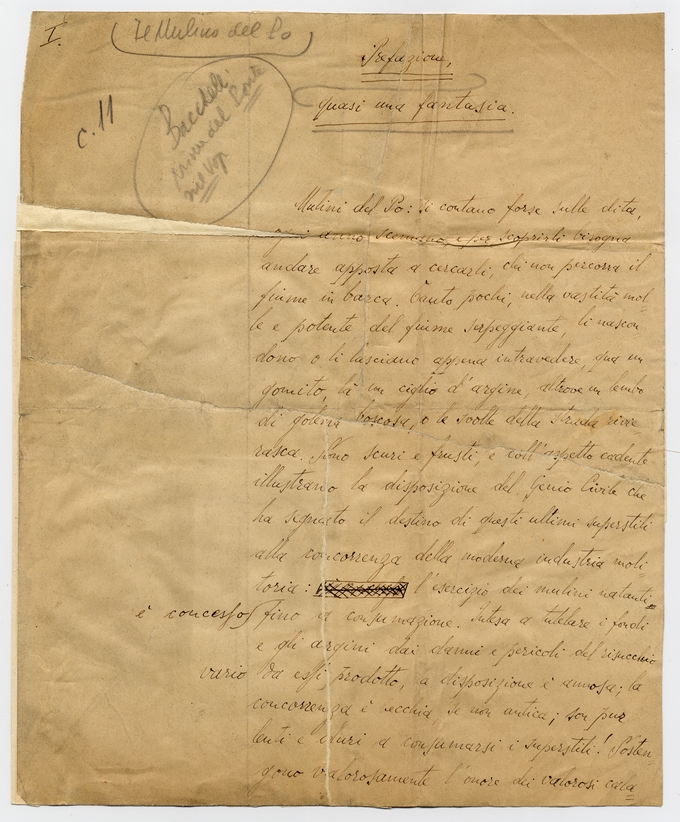 I.
Il Mulino del Po
Prefazione,
quasi una fantasia.
c. 11
Bacchelli
del Ponte
Mulini del Po: si contano forse sulle dita,
ogni anno scemano, e per scoprirli bisogna
andare apposta a cercarli, chi non percorra il
fiume in barca. Tanto pochi, nella vastità mol-
le e potente del fiume serpeggiante, li nascon-
dono o li lasciano appena intravedere, qua un
gomito, là un ciglio d'argine, altrove un lembo
di golena boscosa, o le svolte della strada rivie
rasca. Sono scuri e frusti, e coll'aspetto cadente
illustrano la disposizione del Genio Civile che
ha segnato il destino di questi ultimi superstiti
alla concorrenza della moderna industria moli-
toria: l'esercizio dei mulini natanti=
è concesso fino a consumazione. Intesa a tutelare i fondi
e gli argini dai danni e pericoli del risucchio
vario da essi prodotto, a disposizione è annosa; la
concorrenza è vecchia, se non antica; son pur
lenti e duri a consumarsi i superstiti! Sosten-
gono valorosamente l'onore dei valorosi cala=